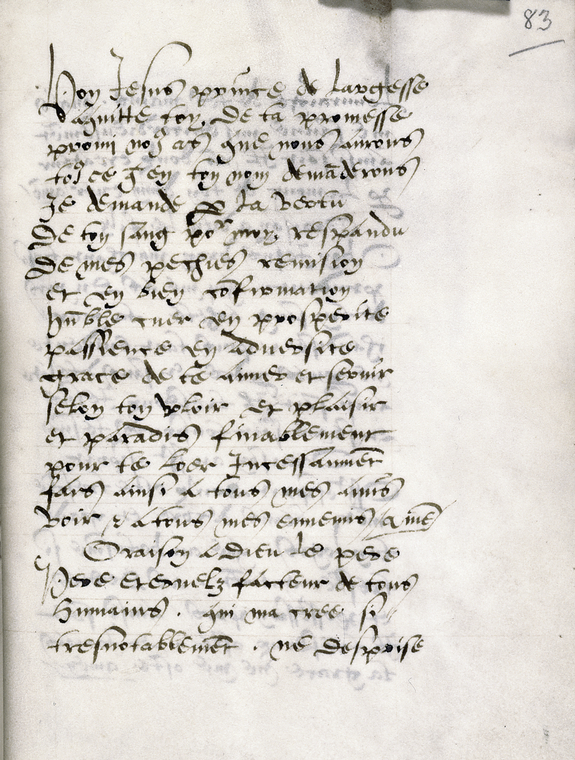 83
Roy Jesus prince de largesse
Jaquitte toy de ta promesse
promi no9 as que nous aurons
to9 ce q en ton nom demāderons
Je demande p la vertu
De ton sang por moy respandu
De mes pechies remision
et en bien cōfirmation
hūble cuer en prosperite
passience en adversite
grace de te aimer et servir
selon ton vloir et plaisir
et paradis finablement
pour te loer Incessāmēt
fais ainsi a tous mes amis
voir & a tous mes ennemis amē
Oraison a dieu le pere
Pere eternelz facteur de tous
humains . qui ma cree si
tresnotablemēt . ne desprise